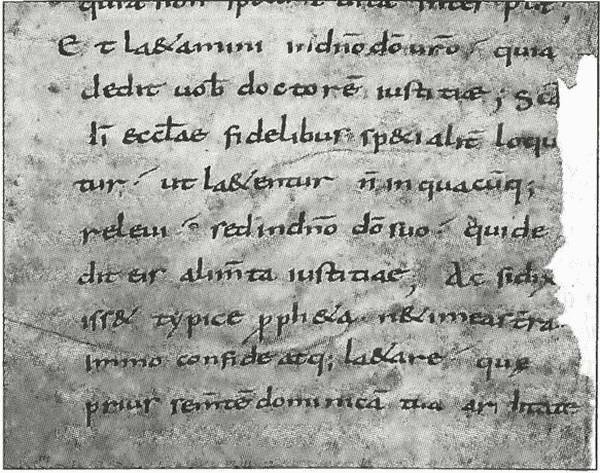 quia non inter
Et la&amini indño dō urō quia
dedit uob̄ doctorē iustitiae ; Sc̄d
lī eccłae fidelibus sp&ialit̄ loqu
tur ut la&entur n̄ in quacūq;
releui sed indño dō suo qui de
dit eis alim̄ta iustitiae ; Ac sidix
iss& typice ꝓph&a n&imeas t̄ra
Immo confide atq; la&are quę
prius sem̄tē dominicā tua